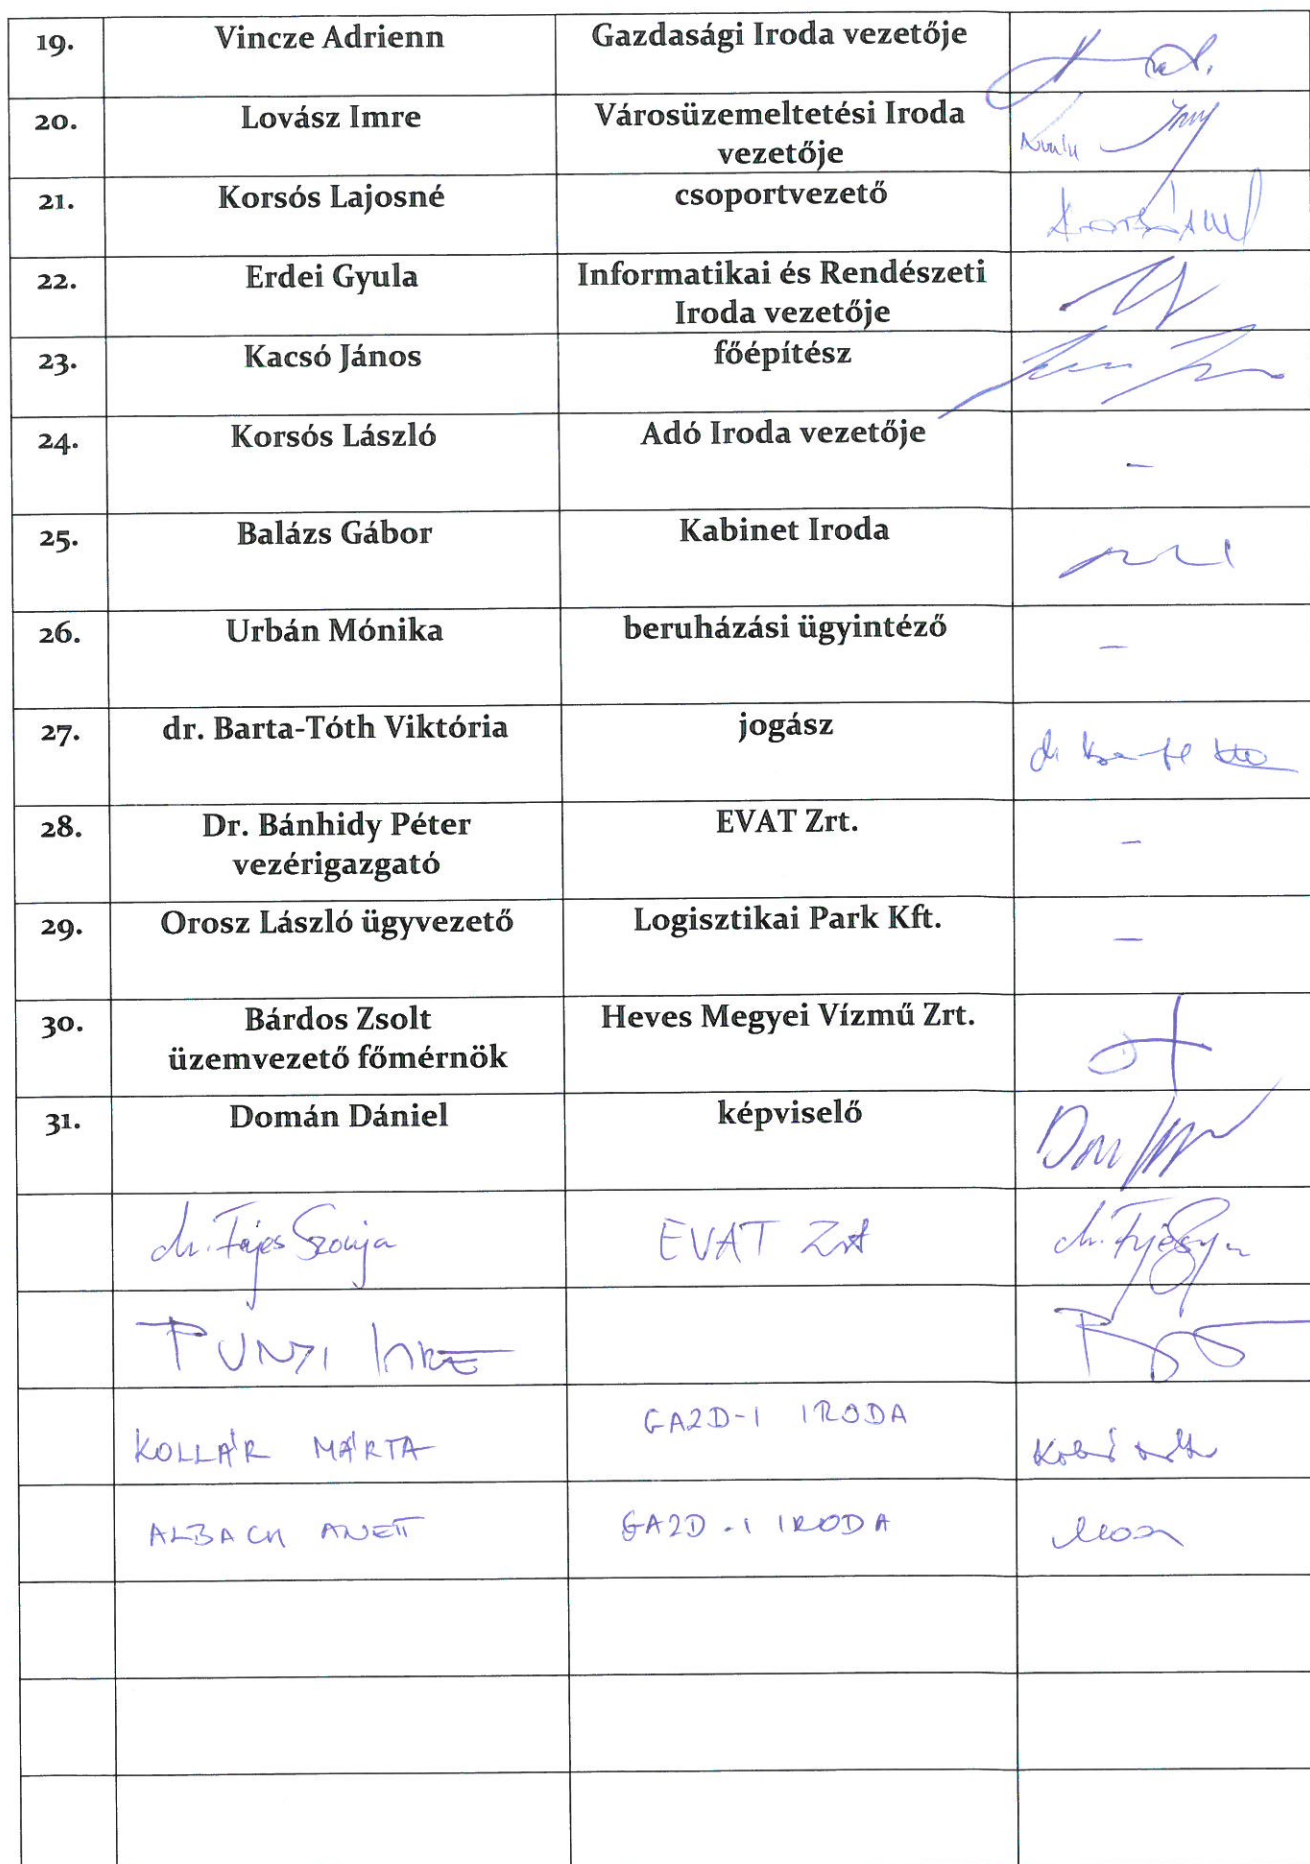 19. Vincze Adrienn Gazdasági Iroda vezetője
20. Lovász Imre Városüzemeltetési Iroda
vezetője
21. Korsós Lajosné csoportvezető
22. Erdei Gyula Informatikai és Rendészeti
Iroda vezetője
23. Kacsó János főépítész
24. Korsós László Adó Iroda vezetője -
25. Balázs Gábor Kabinet Iroda
26. Urbán Mónika beruházási ügyintéző -
27. dr. Barta-Tóth Viktória jogász
28. Dr. Bánhidy Péter EVAT Zrt. -
vezérigazgató
29. Orosz László ügyvezető Logisztikai Park Kft. -
30. Bárdos Zsolt Heves Megyei Vízmű Zrt.
üzemvezető főmérnök
31. Domán Dániel képviselő
dr. Fajcs Szonja EVAT Zrt
KOLLÁR MÁRTA GAZD-I IRODA
ALBACH ANETT GAZD-I IRODA